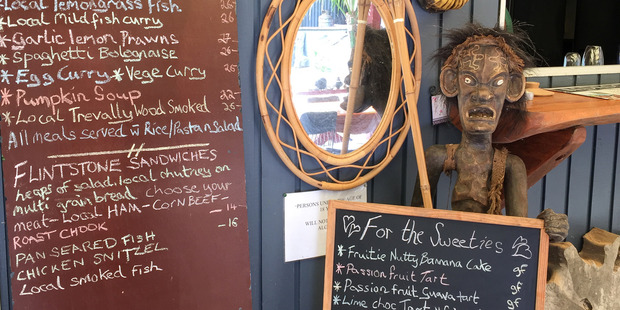 Local lemongrass fish 26-
*Local Mild fish curry 26-
*Garlic lemon Prawns 27-
*Spaghetti Bolognaise
*Egg Curry *Vege Curry 25-
*Pumpkin Soup 22-
*Local Trevally Wood Smoked 26-
All meals served w Rice/Pasta n Salad
FLINTSTONE SANDWICHES
heaps of salad, local chutney on
multi grain bread choose your
meat - Local HAM - CORN BEEF - 14
ROAST CHOOK -16
PAN SEARED FISH
CHICKEN SNITZEL
Local smoked fish
PERSONS UN
WILL NO
AL
For the Sweeties
*Fruitie Nutty Banana Cake 9F
*Passion fruit Tart 9F
*Passion fruit Guava tart 9F
*Lime choc Tart 9F